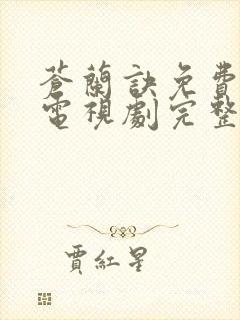 蒼蘭訣免費
電視劇完整
賈紅星